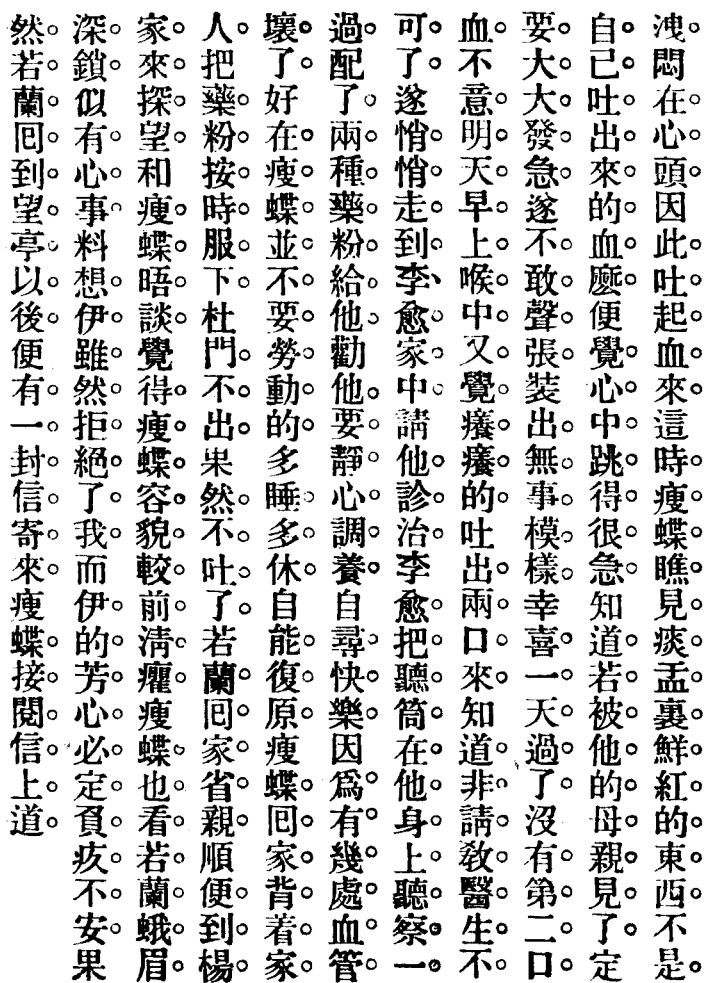 洩悶在心頭因此吐起血來這時瘦蝶瞧見痰盂裏鮮紅的東西不是
自己吐出來的血麽便覺心中跳得很急知道若被他的母親見了定
要大大發急遂不敢聲張裝出無事模樣幸喜一天過了沒有第二口
血不意明天早上喉中又覺癢癢的吐出兩口來知道非請敎醫生不
可了遂悄悄走到李愈家中請他診治李愈把聽筒在他身上聽察一
過配了兩種藥粉給他勸他要靜心調養自尋快樂因爲有幾處血管
壞了好在瘦蝶並不要勞動的多睡多休自能復原瘦蝶囘家背着家
人把藥粉按時服下杜門不出果然不吐了若蘭囘家省親順便到楊
家來探望和瘦蝶晤談覺得瘦蝶容貌較前淸癯瘦蝶也看若蘭蛾眉
深鎖似有心事料想伊雖然拒絕了我而伊的芳心必定負疚不安果
然若蘭囘到望亭以後便有一封信寄來瘦蝶接閱信上道